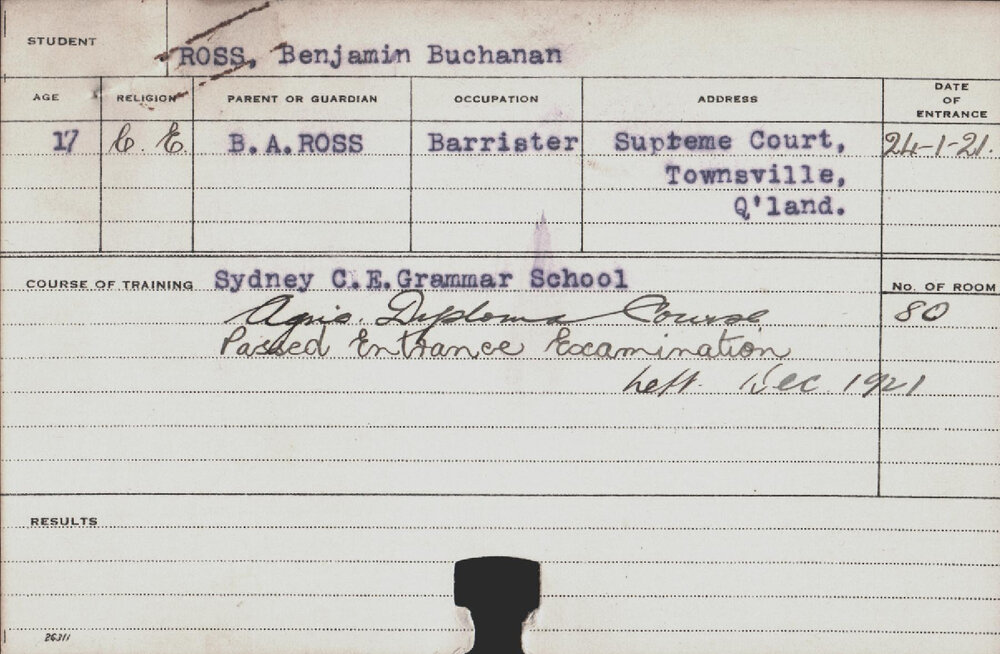 STUDENT ROSS, Benjamin Buchanan
AGE RELIGION PARENT OR GUARDIAN OCCUPATION ADDRESS DATE OF ENTRANCE
17 C. E. B.A.ROSS Barrister Supreme Court, 24-1-21.
Townsville,
Q'land.
COURSE OF TRAINING Sydney C.E.Grammar School No. OF ROOM
Agric. Diploma Course 80
Passed Entrance Examination
Left. Dec 1921
RESULTS
26311